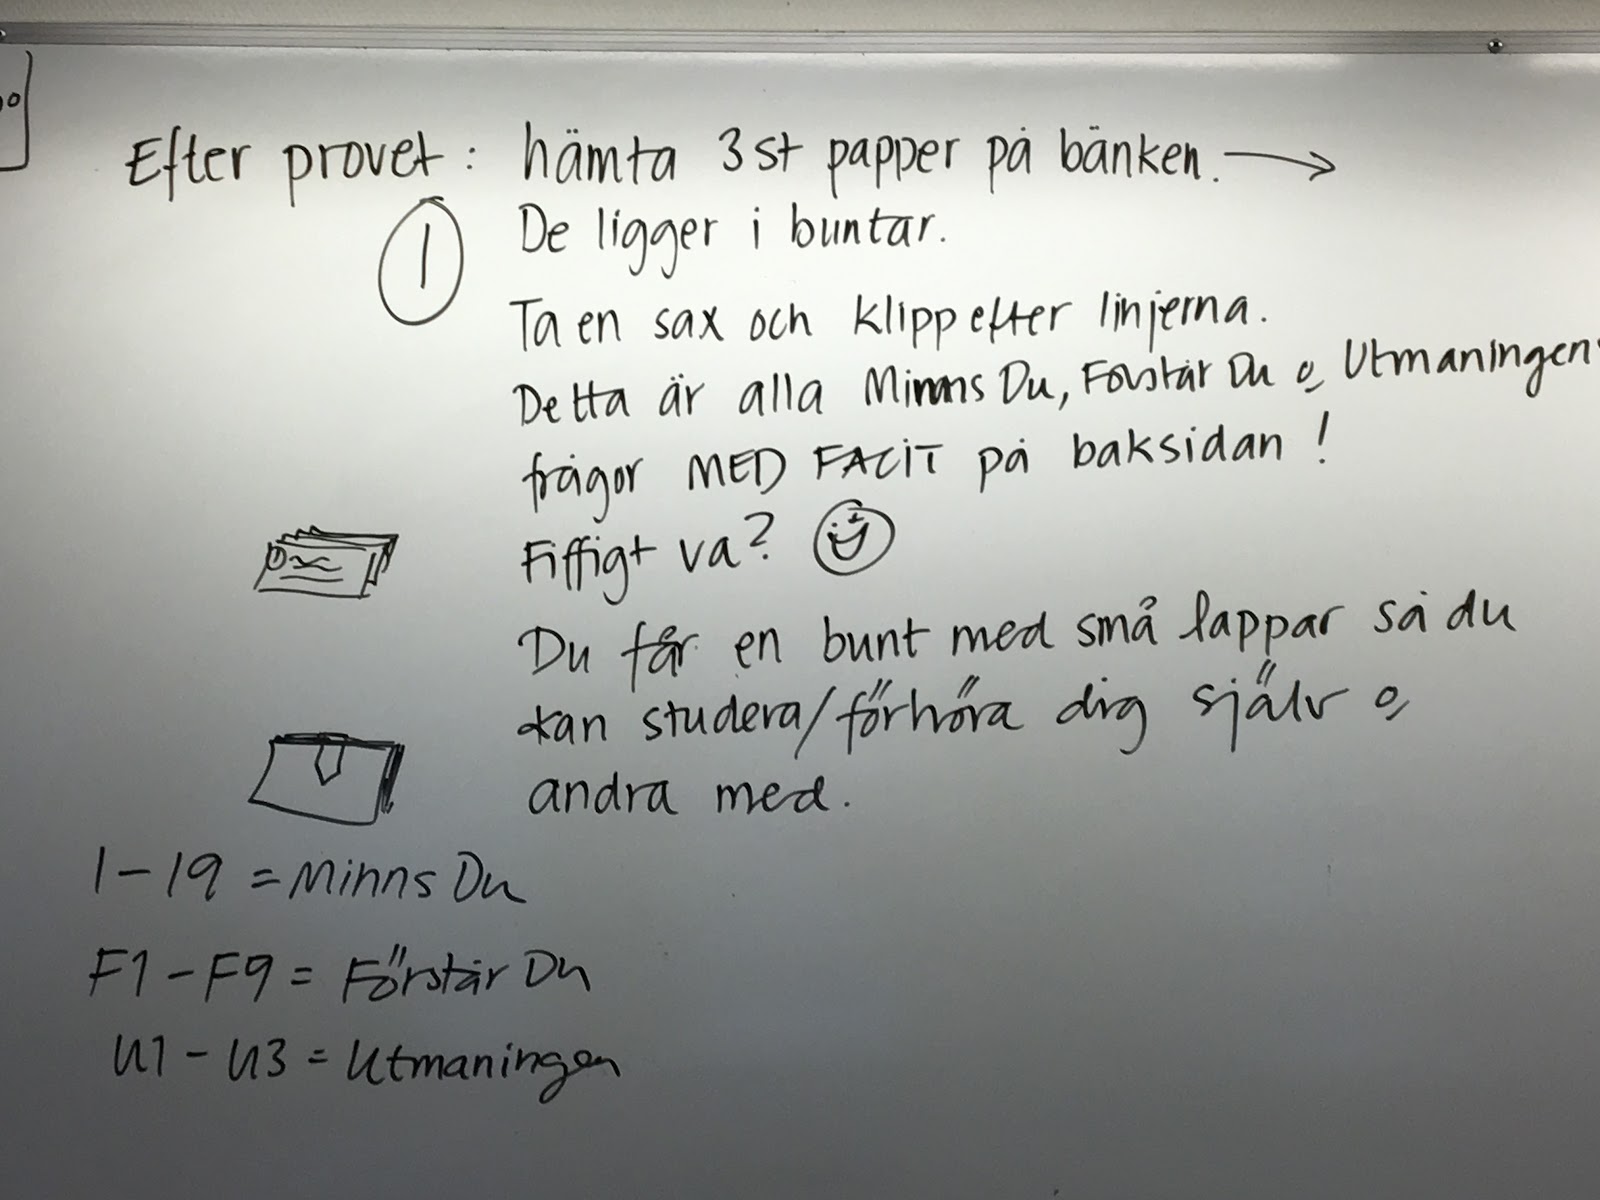 Efter provet: hämta 3st papper på bänken. →
① De ligger i buntar.
Ta en sax och klipp efter linjerna.
Detta är alla Minns Du, Förstår Du o Utmaningen
frågor MED FACIT på baksidan!
Fiffigt va?
Du får en bunt med små lappar så du
kan studera/förhöra dig själv o
andra med.
1-19 = Minns Du
F1-F9 = Förstår Du
U1-U3 = Utmaningen